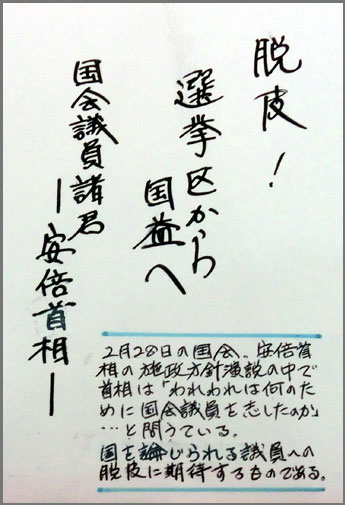 脱皮！
選挙区から
国益へ
国会議員諸君
ー安倍首相ー
2月28日の国会、安倍首
相の施政方針演説の中で
首相は「われわれは何のた
めに国会議員を志したのか
…と問うている。
国を論じられる議員への
脱皮に期待するものである。